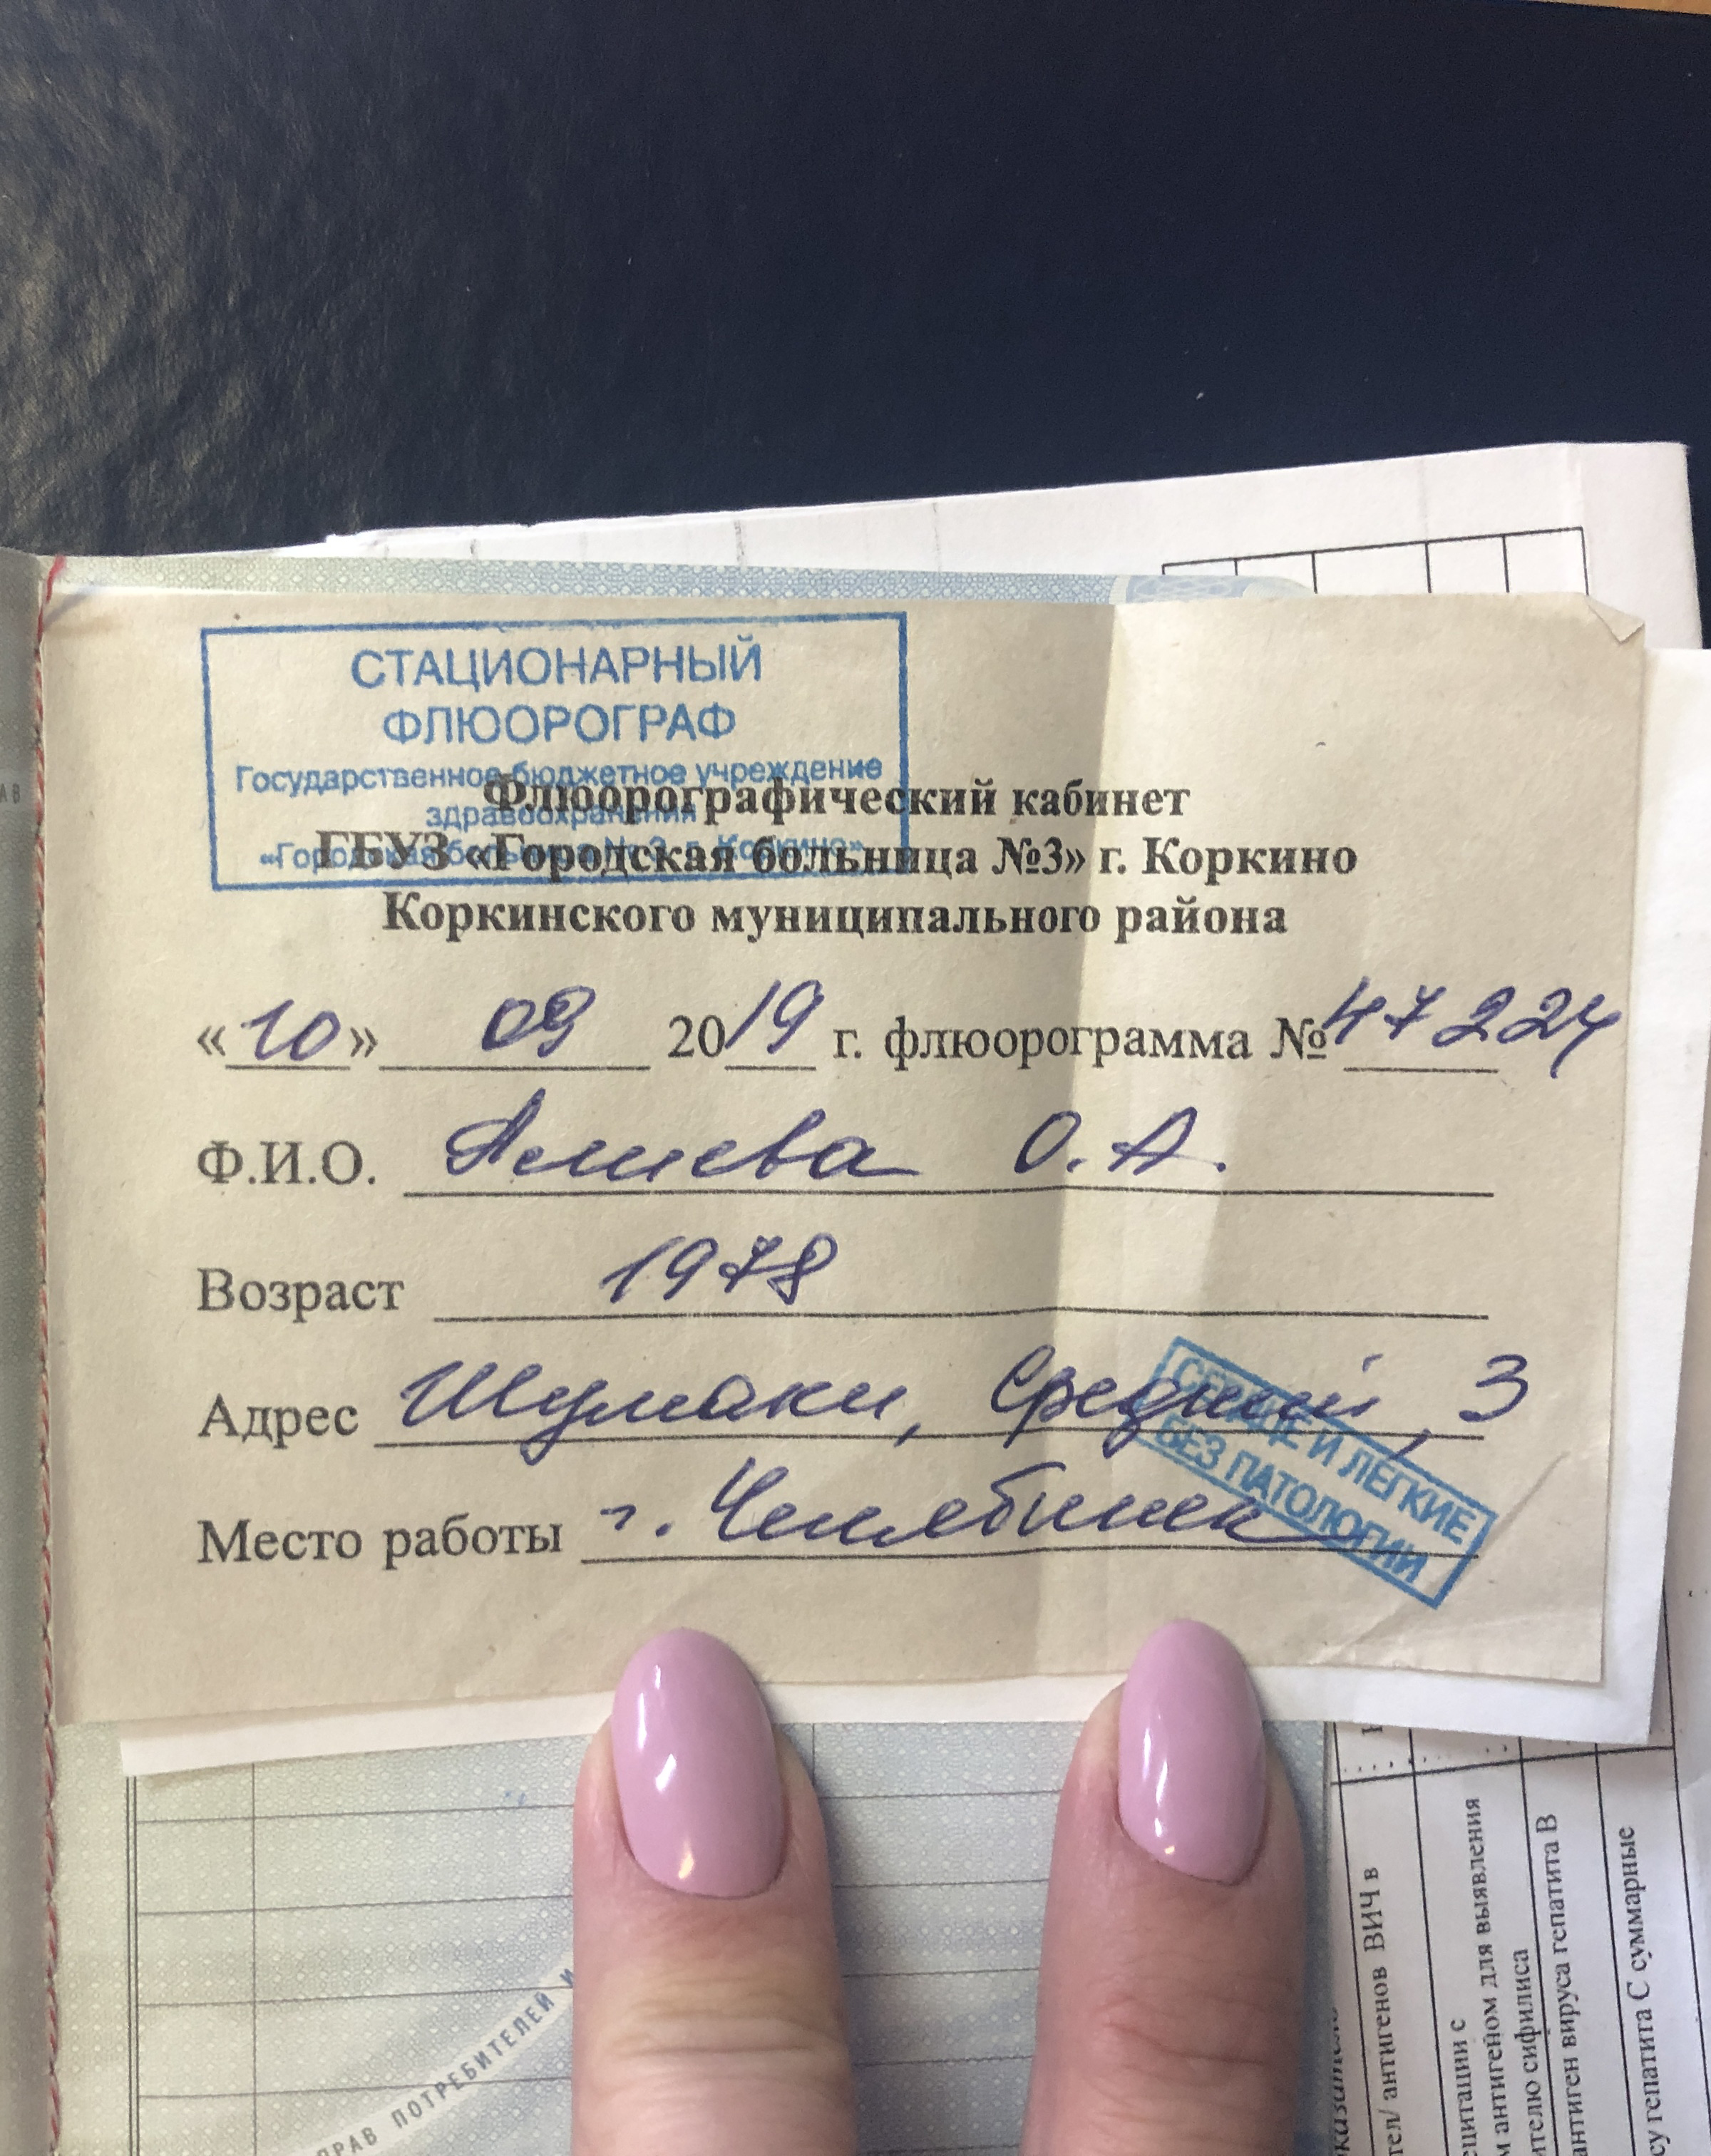 СТАЦИОНАРНЫЙ
ФЛЮОРОГРАФ
Государственное бюджетное учреждение
здравоохранения
«Городская больница № 3 г. Коркино»
Флюорографический кабинет
ГБУЗ «Городская больница №3» г. Коркино
Коркинского муниципального района
«10» 09 2019 г. флюорограмма № 47224
Ф.И.О. Алиева О.А.
Возраст 1978
Адрес Шумаки, Средний, 3
Место работы г. Челябинск
СЕРДЦЕ И ЛЕГКИЕ
БЕЗ ПАТОЛОГИИ
ПРАВ ПОТРЕБИТЕЛЕЙ И
антигенов ВИЧ в
с
антигеном для выявления
сифилиса
антиген вируса гепатита В
гепатита С суммарные